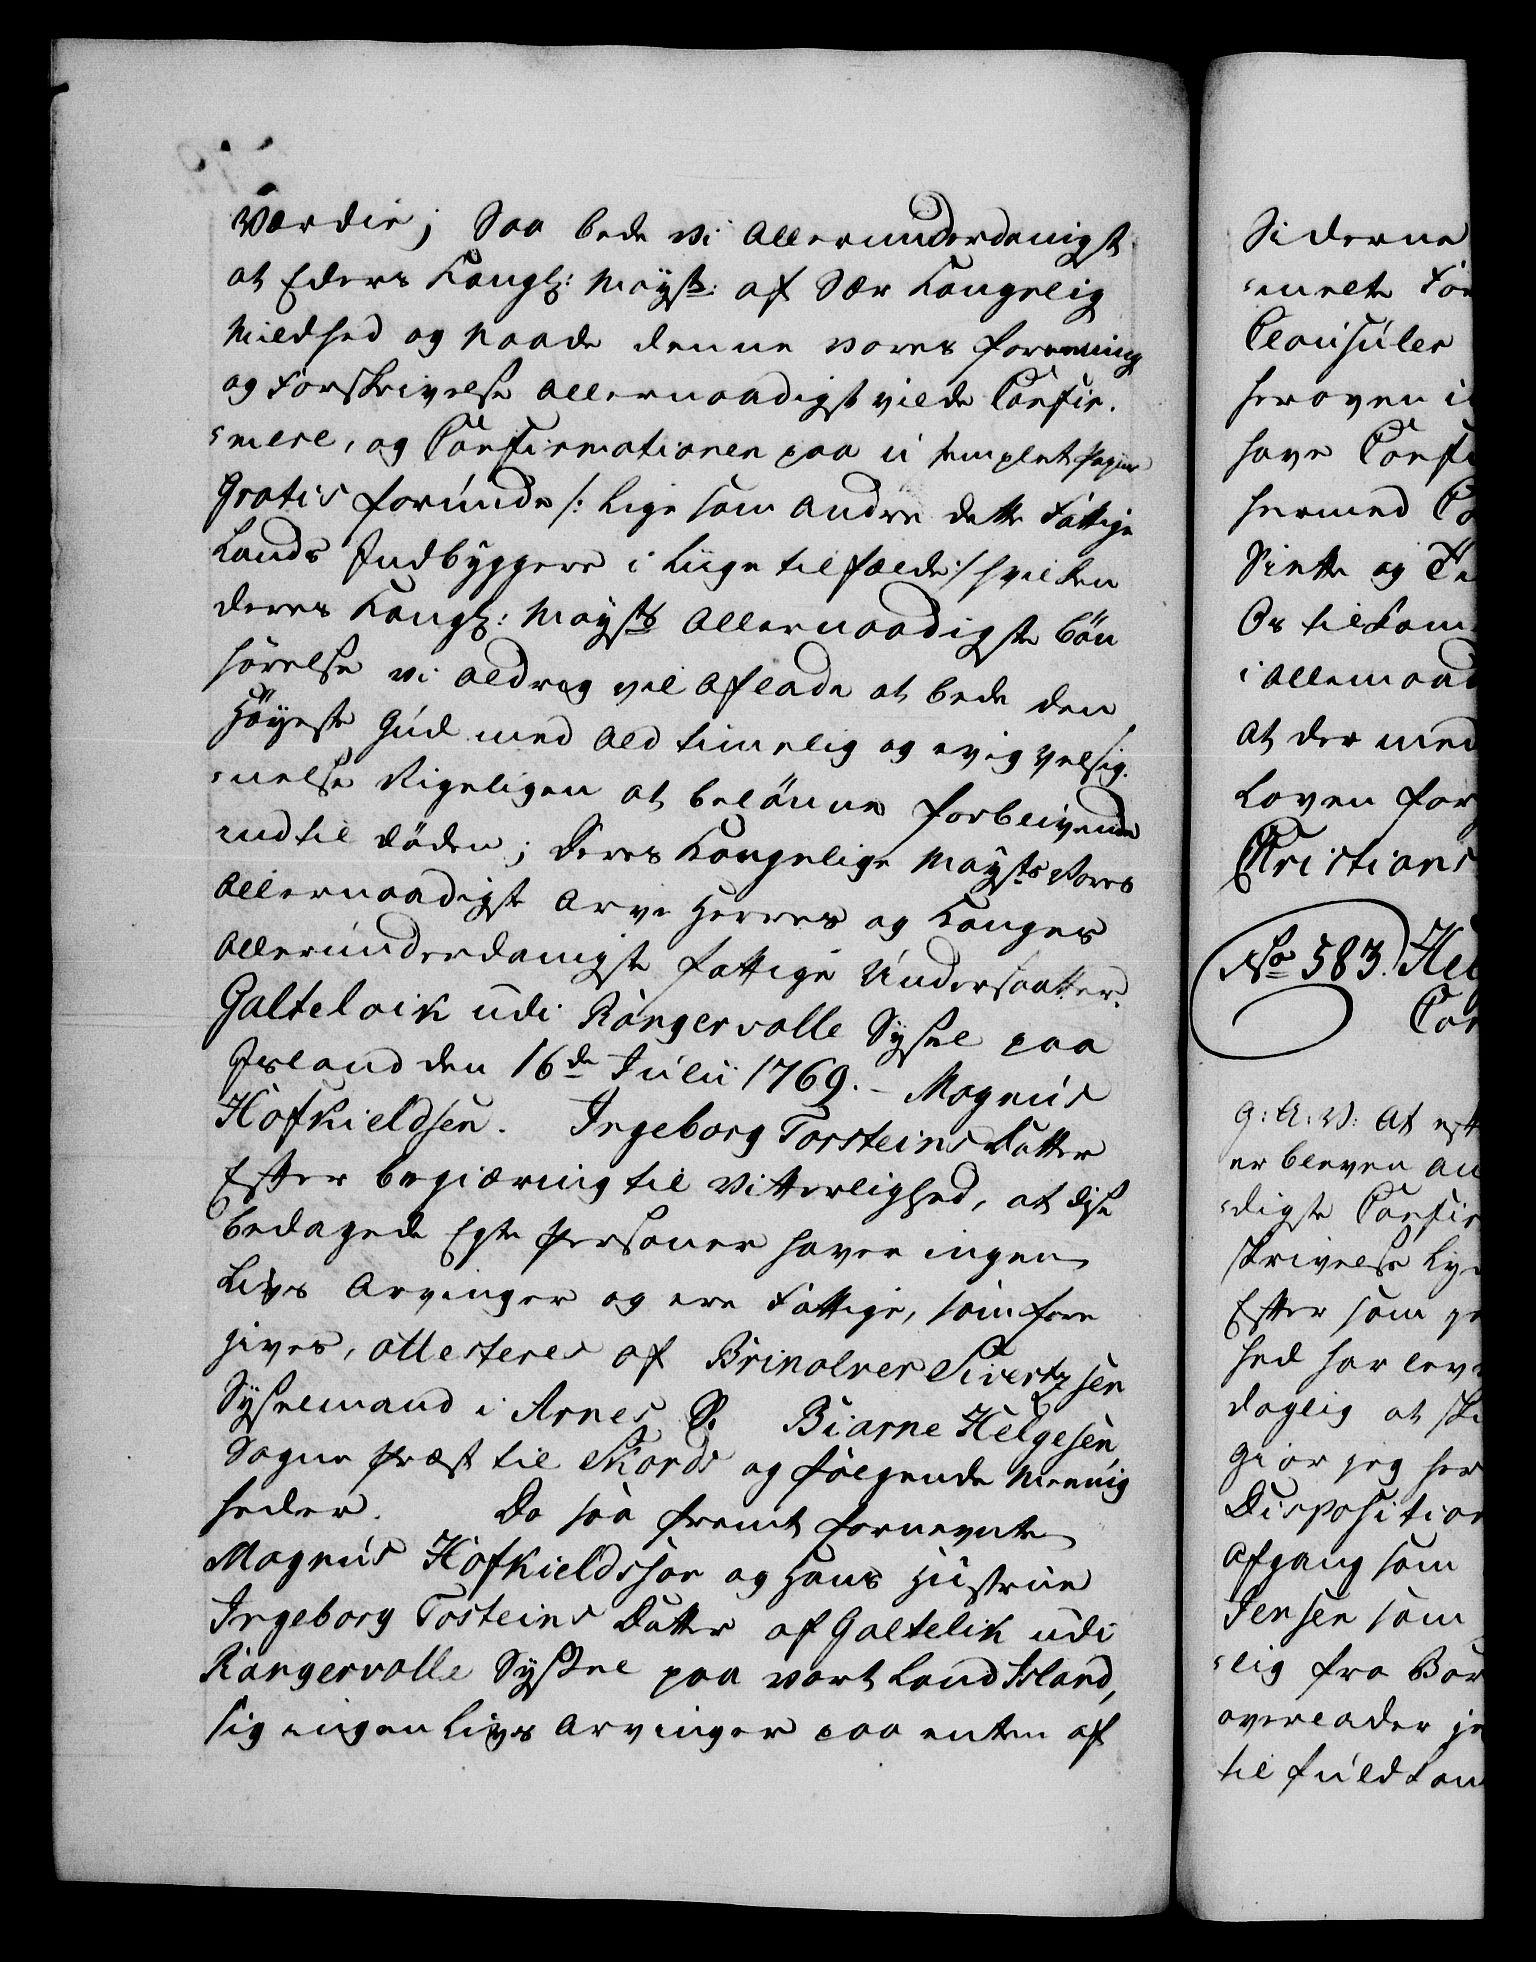 Værdie; Saa bede vi allerunderdanigst
at Eders Kongl: Mayst: af Sær Kongelig
Mildhed og Naade denne vores forreening
og Forskrivelse allernaadigst vilde Confir-
=mere, og Confirmationen paa u stemplet Papiir
Gratis forúnde /: Lige som andre dette Fattige
Lands Indbyggere i Liige tilfælde :/ hvilken
deres Kongl: Maysts allernaadigste bön
hörelse vi aldrig vil aflade at bede den
Höyeste Gúd med ald timelig og evig velsig-
=nelse Rigeligen at belönne forblivende
indtil döden; Deres Kongelige Maysts Vores
Allernaadigste Arve Herres og Konges
Allerúnderdanigste fattige Undersaatter.
Galteloik udi Rangervalle Sysel paa
Island den 16de Julii 1769. – Magnús
Höfkieldsen. Ingeborg Torsteins Datter
Efter begiæring til vitterlighed, at disse
bedagede Egte Personer haver ingen
Livs Arvinger og ere Fattige, som fore
gives, attesteres af Brinolver Sivertzsen
Sysselmand i Arnes S. Biarne Helgesen
Sogne Præst til Skards og fölgende Meenig
heder. Da saa fremt fornevnte
Magnús Höfkieldssøn og Hans Hústrúe
Ingeborg Tosteins Datter af Galtelik udi
Rangervalle Syssel paa vort Land Island,
sig ingen Livs Arvinger paa enten af
Siderne
=melte For
Clausúler
heroven i
have Confi
hermed Co
Sintte og Fe
Os tilkom
i allemaad
at der med
Loven for
Christians
No 583. Hel
Con
G: A: V: At eft
er bleven an
=digste Confir
skrivelse Ly
Efter som
hed har lev
daglig at
Giör jeg her
Disposition
afgang som
Jensen som
=lig fra Bar
overlader je
til fúldkom